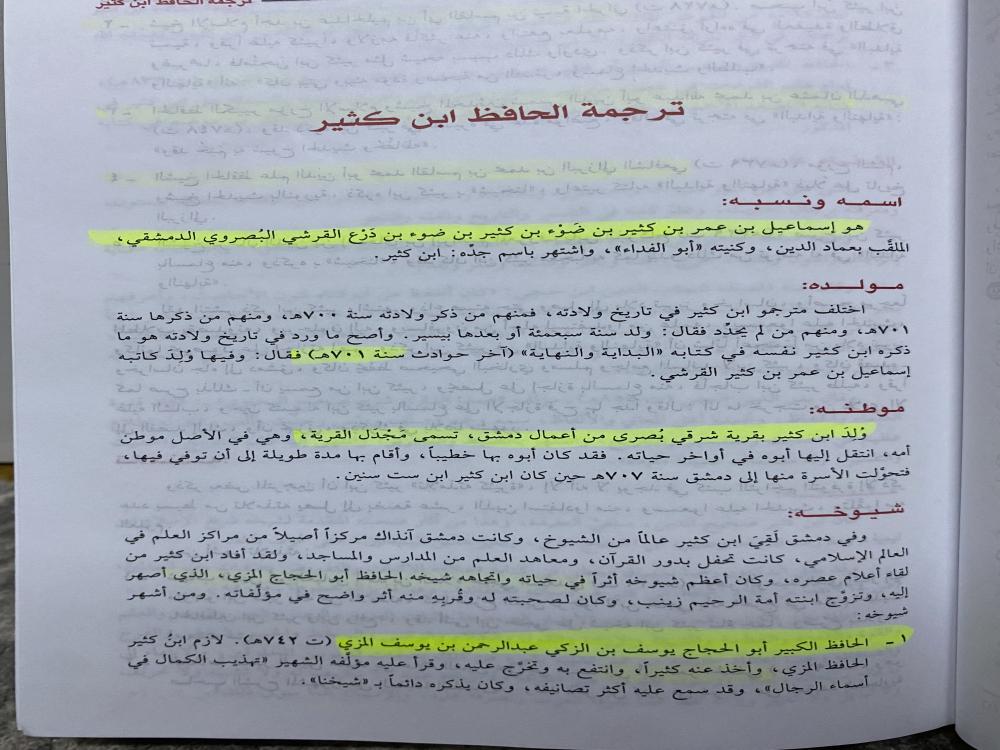 ترجمة الحافظ ابن كثير
ترجمة الحافظ ابن كثير
اسمه ونسبه:
هو إسماعيل بن عمر بن كثير بن ضَوْء بن كثير بن ضوء بن دَرْع القرشي البُصروي الدمشقي،
الملقَّب بعماد الدين، وكنيته «أبو الفداء»، واشتهر باسم جدّه: ابن كثير.
مولده:
اختلف مترجمو ابن كثير في تاريخ ولادته، فمنهم من ذكر ولادته سنة ٧٠٠هـ، ومنهم من ذكرها سنة
٧٠١هـ، ومنهم من لم يحدِّد فقال: ولد سنة سبعمئة أو بعدها بيسير. وأصح ما ورد في تاريخ ولادته هو ما
ذكره ابن كثير نفسه في كتابه «البداية والنهاية» (آخر حوادث سنة ٧٠١هـ) فقال: وفيها وُلِدَ كاتبه
إسماعيل بن عمر بن كثير القرشي.
موطنه:
وُلِدَ ابن كثير بقرية شرقي بُصرى من أعمال دمشق، تسمى مَجْدَل القرية، وهي في الأصل موطن
أمه، انتقل إليها أبوه في أواخر حياته. فقد كان أبوه بها خطيباً، وأقام بها مدة طويلة إلى أن توفي فيها،
فتحوّلت الأسرة منها إلى دمشق سنة ٧٠٧هـ حين كان ابن كثير ابن ست سنين.
شيوخه:
وفي دمشق لَقِيَ ابن كثير عالماً من الشيوخ، وكانت دمشق آنذاك مركزاً أصيلاً من مراكز العلم في
العالم الإسلامي، كانت تحفل بدور القرآن، ومعاهد العلم من المدارس والمساجد، ولقد أفاد ابن كثير من
لقاء أعلام عصره، وكان أعظم شيوخه أثراً في حياته واتجاهه شيخه الحافظ أبو الحجاج المزي، الذي أصهر
إليه، وتزوّج ابنته أمة الرحيم زينب، وكان لصحبته له وقُربِهِ منه أثر واضح في مؤلَّفاته. ومن أشهر
شيوخه:
١ - الحافظ الكبير أبو الحجاج يوسف بن الزكي عبدالرحمن بن يوسف المزي (ت ٧٤٢هـ). لازم ابنُ كثير
الحافظ المزي، وأخذ عنه كثيراً، وانتفع به وتخرّج عليه، وقرأ عليه مؤلَّفه الشهير «تهذيب الكمال في
أسماء الرجال»، وقد سمع عليه أكثر تصانيفه، وكان يذكره دائماً بـ «شيخنا».